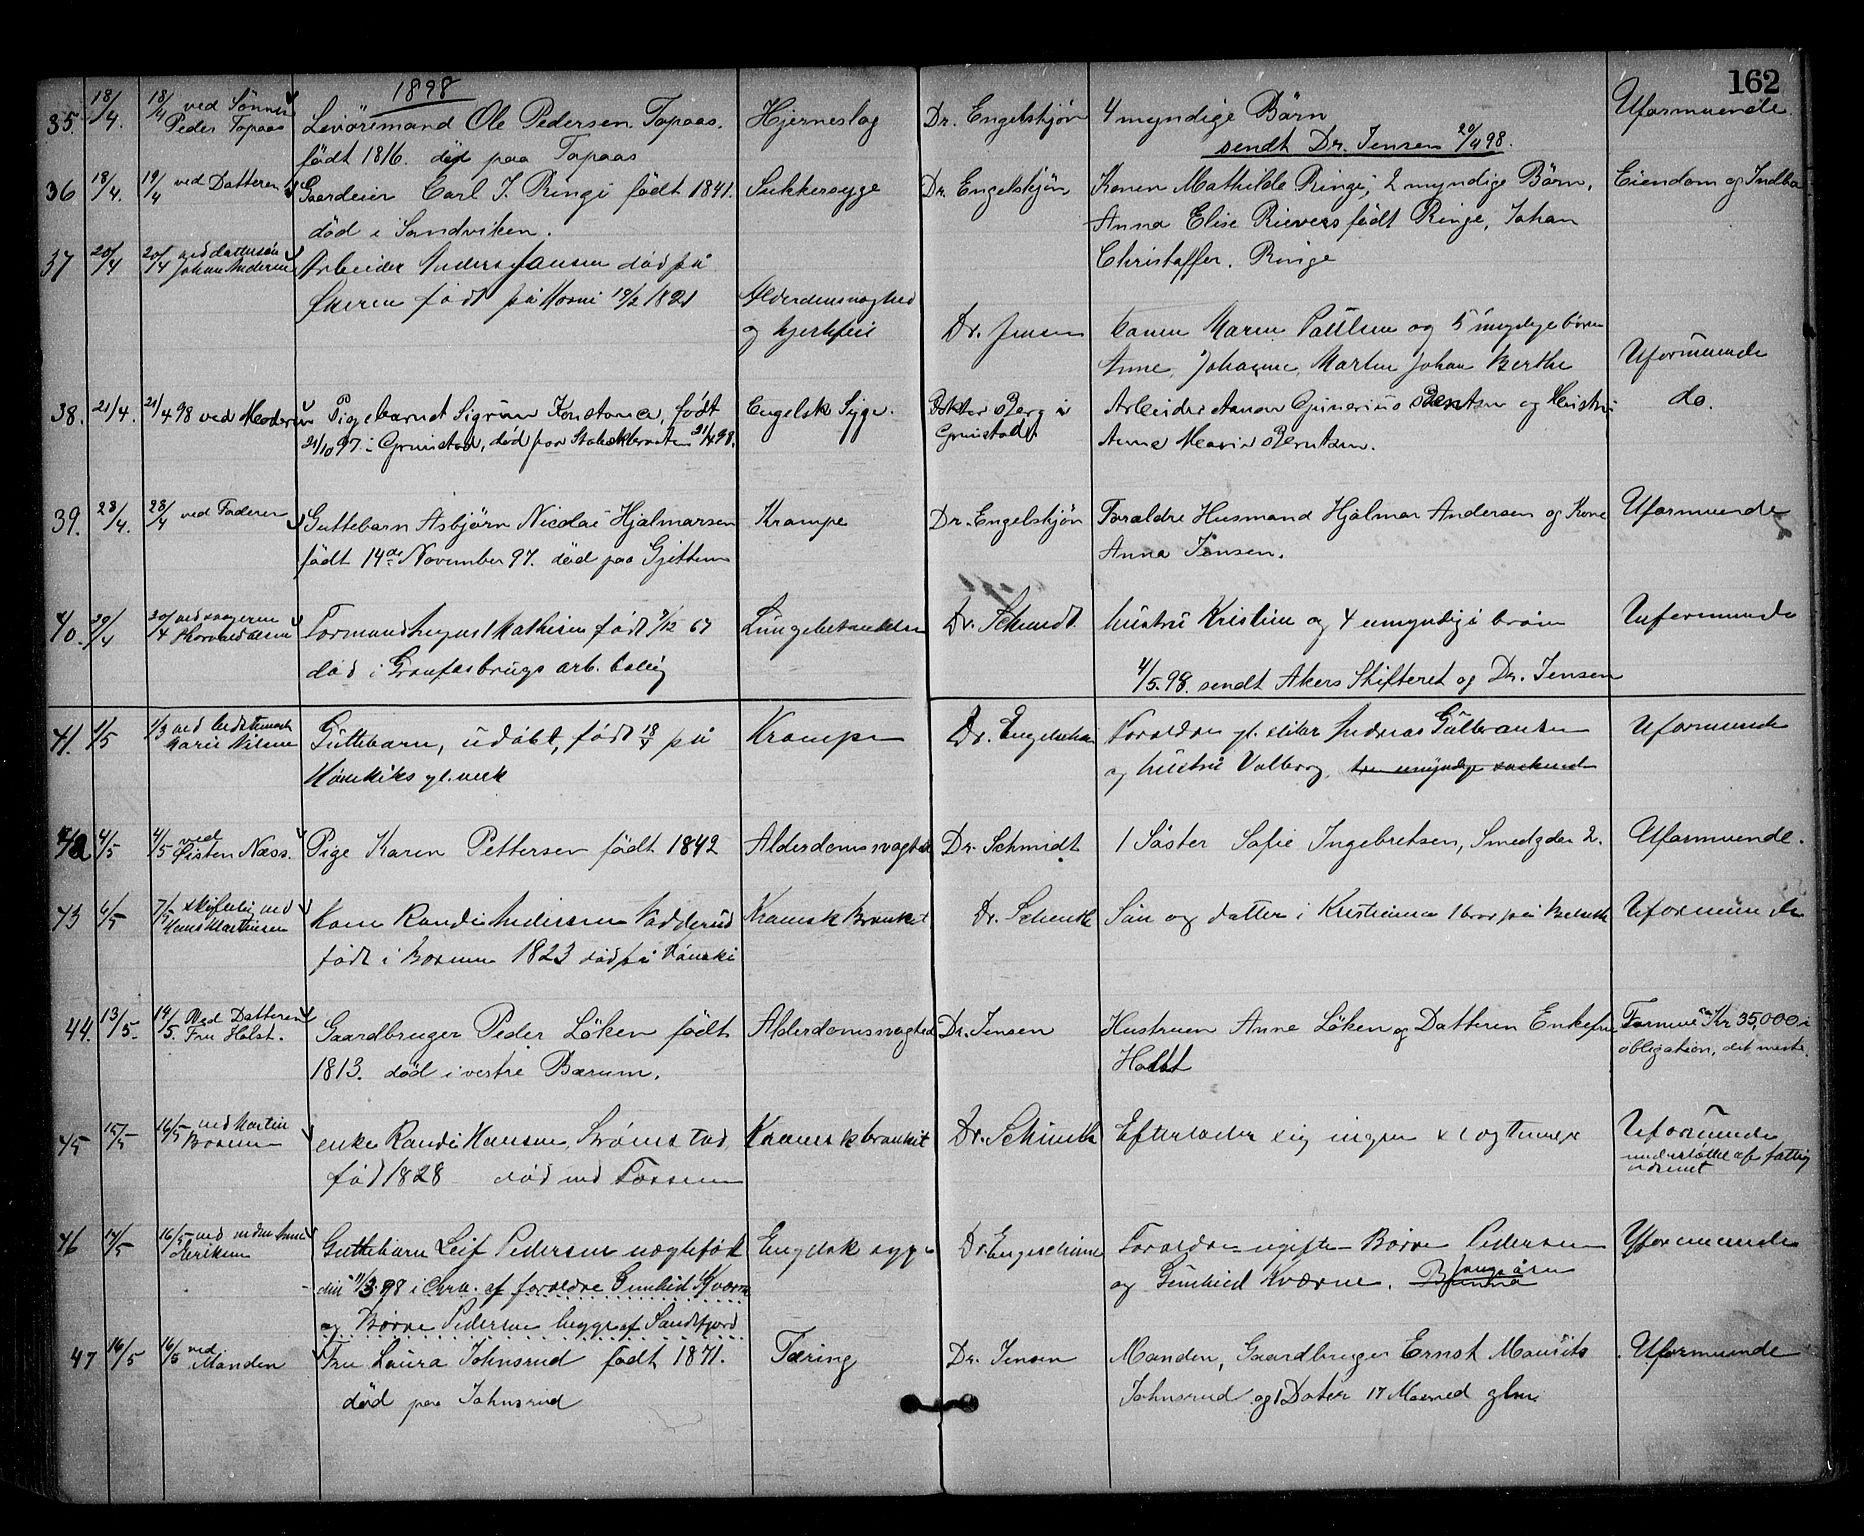 162
1898
35. 18/4. 18/4 ved Sønnen Peder Topaas
Levöremand Ole Pedersen Topaas.
født 1816. død paa Topaas
Hjerneslag
Dr. Engelskjøn
4 myndige Börn
sendt Dr. Jensen 20/4 98.
Uformuende
36 18/4. 19/4 ved Datteren
Gaardeier Carl J. Ringi født 1841.
död i Sandviken.
Sukkersyge
Dr. Engelskjøn
Konen Mathilde Ringi, 2 myndige Börn,
Anna Elise Rievers født Ringe, Johan
Christoffer. Ringe
Eiendom og Indbo
37 20/4 20/4 ved dattersøn Johan
Arbeider Anders Hansen død på
født på 1821
Alderdomsvaghed
og hjertefeil
Dr. Jensen
konen Maren Paulsen og 5 myndige børn
Anne, Johanne, Martin Johan Berthe
Uformuende
38. 21/4. 21/4 98 ved Moderen
Pigebarnet Sigrun Konstance, født
21/10 97 i Grimstad, død paa 21/4 98.
Engelsk Syge.
Doktor Berg i
Grimstad
Arbeider Anton Gunerius Berntsen og Hustru
Anne Marie Berntsen.
do.
39. 28/4. 28/4 ved Faderen
Guttebarn Asbjörn Nicolai Hjalmarsen
født 14de November 97. død paa Gjettum
Krampe
Dr. Engelskjøn
Forældre Husmand Hjalmar Andersen og Kone
Anna Jensen.
Uformuende
40. 29/4 ved svogeren
Formand August Mathisen født 7/12 67
død i Granfosbrugs arb. bolig
Lungebetændelse
Dr. Schmidt
hustru Kristine og 4 umyndige børn
4/5.98. sendt Akers Skifteret og Dr. Jensen
Uformuende
41. 1/5 1/5 ved bedstemoder Marie Nilsen
Guttebarn, udøbt, født 18/4 på
Høviks gl.verk
Krampe
Dr. Engelschøn
Forældre gl. sliber Andreas Gulbransen
og hustru Valborg,
Uformuende
42 4/5 4/5 ved Øisten Næss.
Pige Karen Pettersen født 1842
Alderdomssvaghed
Dr. Schmidt
1 Söster Sofie Ingebretsen, Smedgden 2.
Uformuende.
43 6/5 7/5 skriftelig ved Hans Martinsen
Kone Randi Andersen Vadderud
født i Bærum 1823 død på
Kronisk Bronkit
Dr. Schmidt
Søn og datter i Kristiania 1 bror på
Uformuende
44. 13/5. 14/5. Ved Datteren Fru Holst.
Gaardbruger Peder Löken født
1813. död i vestre Bærum.
Alderdomssvaghed
Dr. Jensen
Hustruen Anne Löken og Datteren Enkefru
Holst
Formue Kr 35,000 i
obligation, det meste.
45 15/5 16/5 ved Martin
enke Randi Hansen, Strømstad,
fød 1828 død ved Fossum
Kronisk bronkit
Dr. Schmidt
Efterlader sig ingen slægtninge
Uformuende
understøttet af fattigvæsenet
46 14/5 16/5 ved
Guttebarn Leif Pedersen uægtefød
den 11/3 98 i Chra. af foreldre Gunhild Kværne
og Børre Pedersen begge af Sandefjord
Engelsk syge
Dr Engelschiøn
Forældre ugifte Børre Pedersen
og Gunhild Kværne.
Uformuende
47 16/5 16/5 ved Manden
Fru Laura Johnsrud født 1871.
död paa Johnsrud
Tæring
Dr. Jensen
Manden, Gaardbruger Ernst Mauritz
Johnsrud og 1 Dater 17 Maaned glm.
Uformuende